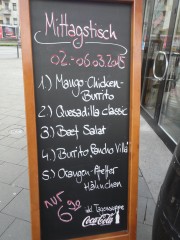 Mittagstisch
02.-06.03.2015
1.) Mango-Chicken-
Burrito
2.) Quesadilla classic
3.) Beef Salat
4.) Burrito „Pancho Villa“
5.) Orangen-Pfeffer
Hähnchen
nur
6,90
inkl. Tagessuppe
Coca-Cola